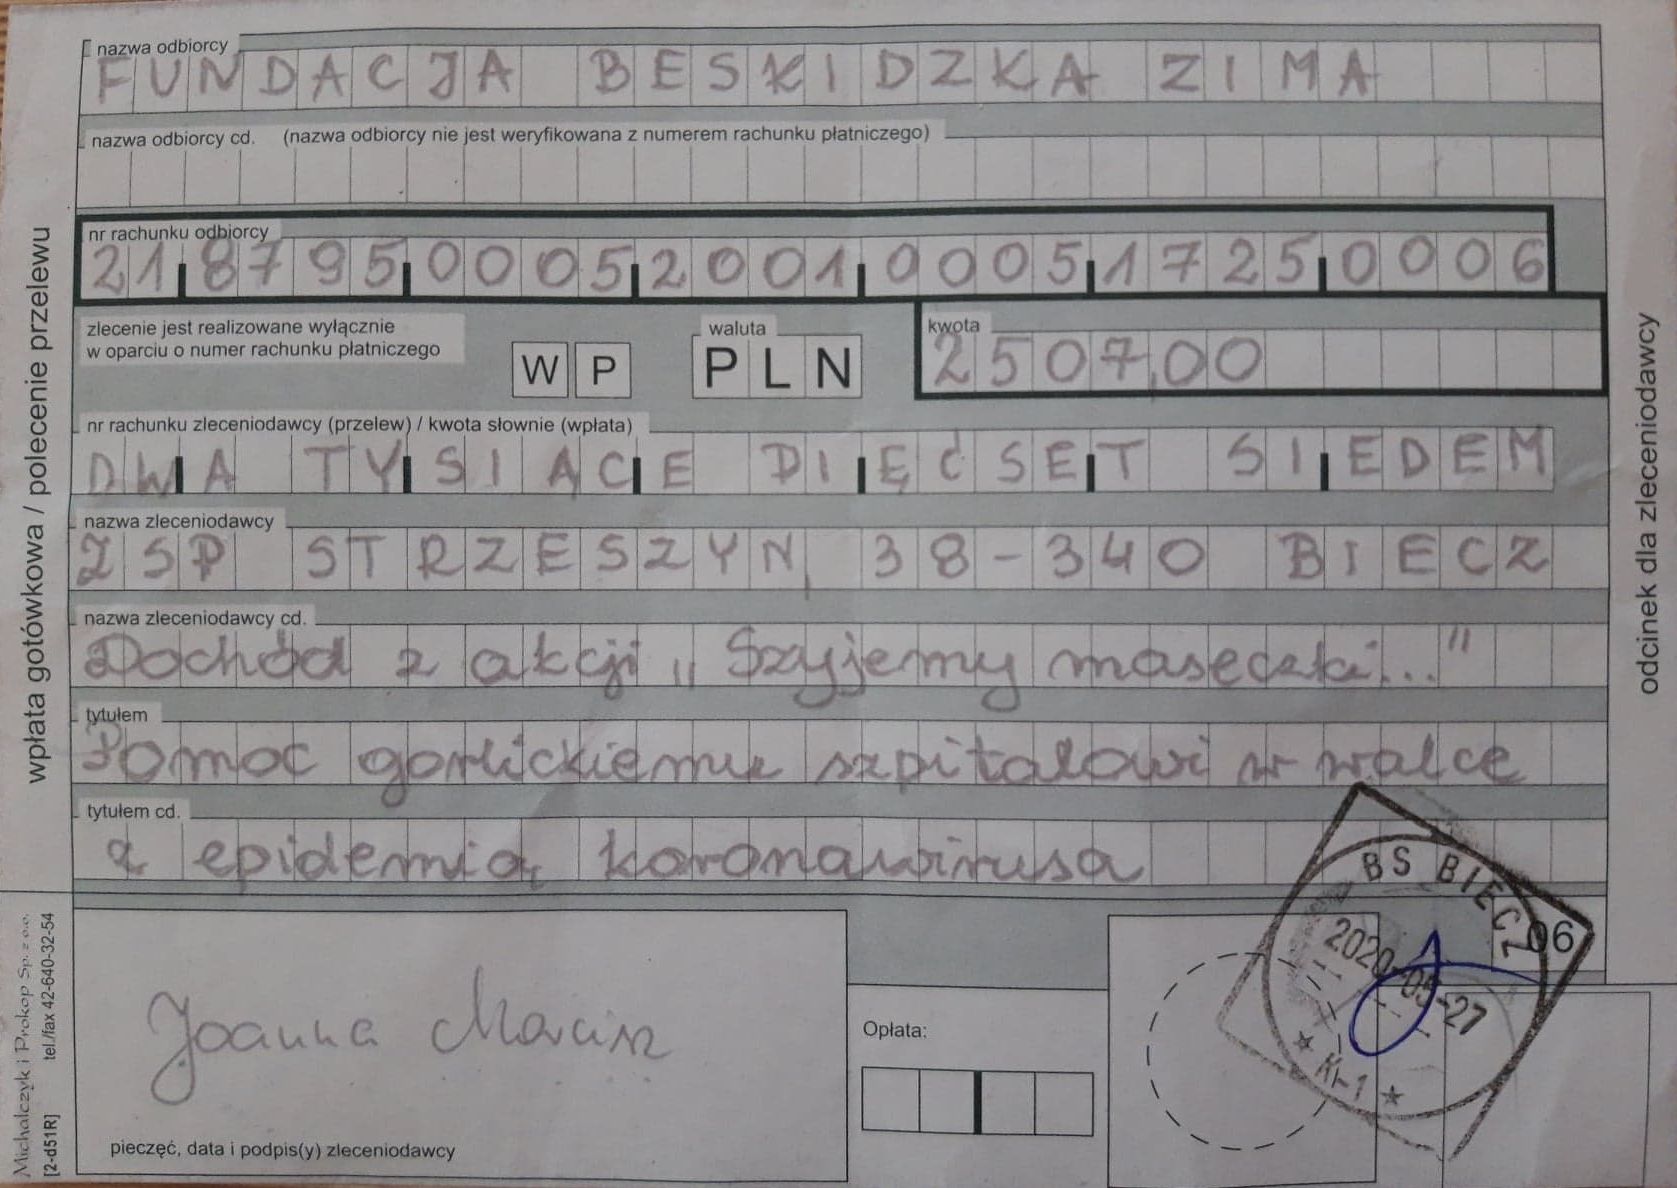 nazwa odbiorcy
FUNDACJA BESKIDZKA ZIMA
nazwa odbiorcy cd. (nazwa odbiorcy nie jest weryfikowana z numerem rachunku płatniczego)
nr rachunku odbiorcy
21 8795 0005 2001 0005 1725 0006
zlecenie jest realizowane wyłącznie
w oparciu o numer rachunku płatniczego
W P
waluta
PLN
kwota
2507,00
nr rachunku zleceniodawcy (przelew) / kwota słownie (wpłata)
DWA TYSIĄCE PIĘĆSET SIEDEM
nazwa zleceniodawcy
ZSP STRZESZYN, 38-340 BIECZ
nazwa zleceniodawcy cd.
Dochód z akcji „Szyjemy maseczki..."
tytułem
Pomoc gorlickiemu szpitalowi w walce
tytułem cd.
z epidemią koronawirusa
BS BIECZ
06
2020-05-27
Kł-1
Joanna
Opłata:
pieczęć, data i podpis(y) zleceniodawcy
wpłata gotówkowa / polecenie przelewu
odcinek dla zleceniodawcy
Michalczyk i Prokop Sp. z o.o.
tel./fax 42-640-32-54
[2-d51R]